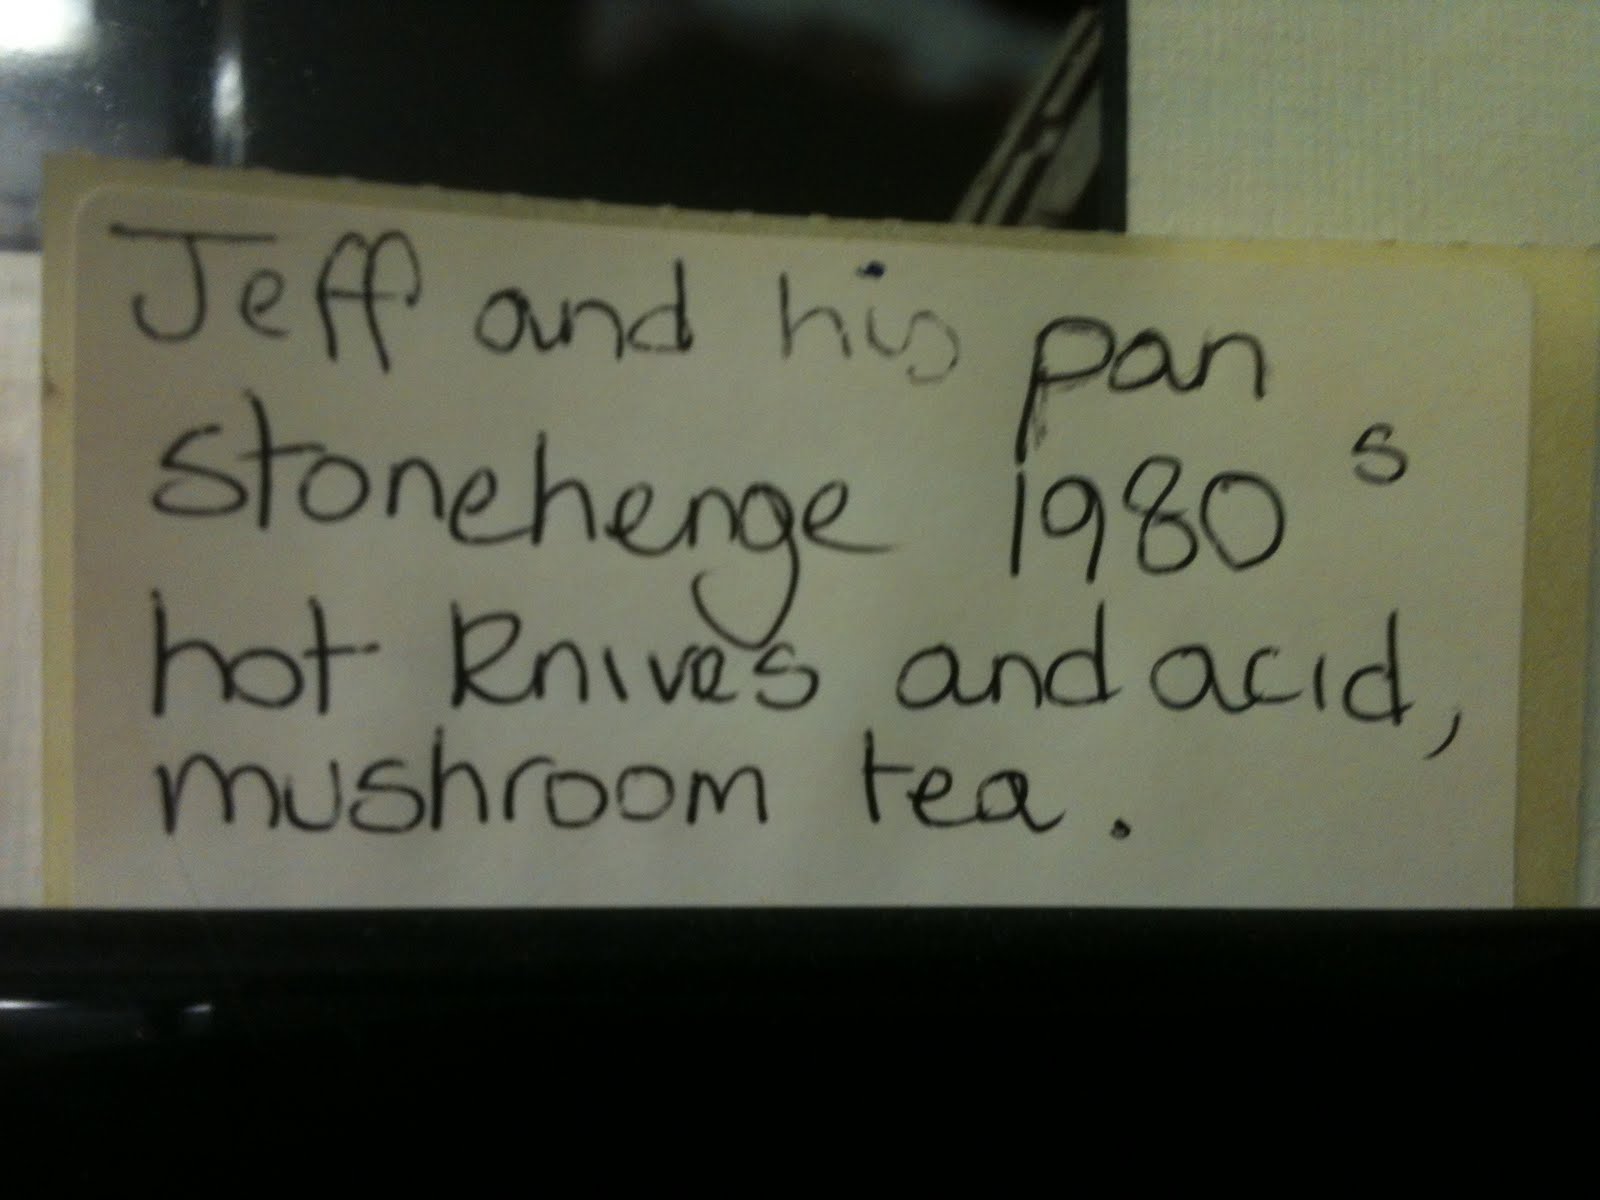 Jeff and his pan
stonehenge 1980s
hot knives and acid,
mushroom tea.